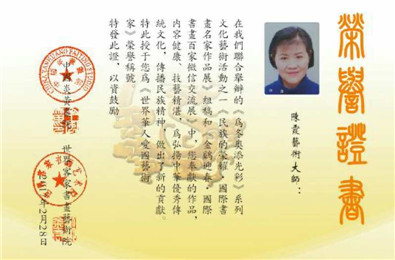 榮譽證書
陳霞藝術大師：
在我們聯合舉辦的《爲冬奧添光彩》系列
文化藝術活動之一《民族的榮耀》國際書
畫名家作品展》組稿和《金鷄迎春》國際
書畫百家微信交流展》中，您奉獻的作品，
内容健康、技藝精湛，爲弘揚中華優秀傳
統文化，傳播民族精神，做出了新的貢獻。
特此授于您爲《世界華人愛國藝術
家》榮譽稱號。
特發此證，以資鼓勵
炎黃
世界客家書畫藝術院
年2月28日